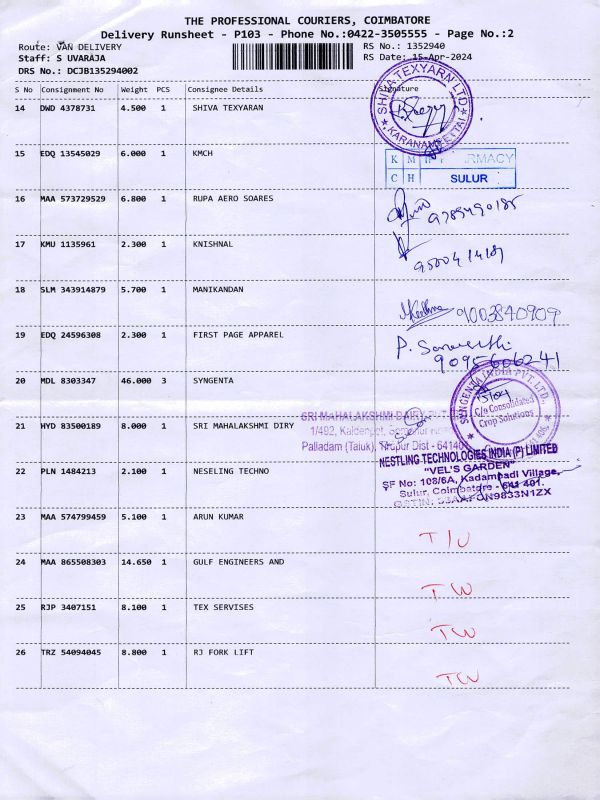 THE PROFESSIONAL COURIERS, COIMBATORE
Delivery Runsheet - P103 - Phone No.:0422-3505555 - Page No.:2
Route: VAN DELIVERY
RS No.: 1352940
Staff: S UVARAJA
RS Date: 15-Apr-2024
DRS No.: DCJB135294002
S No Consignment No Weight PCS Consignee Details Signature
14 DWD 4378731 4.500 1 SHIVA TEXYARAN
SHIVA TEXYARN LTD.
★ KARANAMPETTAI ★
15 EDQ 13545029 6.000 1 KMCH
K M PHARMACY
C H SULUR
16 MAA 573729529 6.800 1 RUPA AERO SOARES
9789490185
17 KMU 1135961 2.300 1 KNISHNAL
9500414189
18 SLM 343914879 5.700 1 MANIKANDAN
9003840909
19 EDQ 24596308 2.300 1 FIRST PAGE APPAREL
P.
9095606241
20 MDL 8303347 46.000 3 SYNGENTA
SYNGENTA INDIA PVT. LTD.
C/o Consolidated
Crop Solutions
21 HYD 83500189 8.000 1 SRI MAHALAKSHMI DIRY
SRI MAHALAKSHMI DAIRY
1/492,
Palladam (Taluk), Tirupur Dist - 641
22 PLN 1484213 2.100 1 NESELING TECHNO
NESTLING TECHNOLOGIES INDIA (P) LIMITED
"VEL'S GARDEN"
SF No: 108/6A, Kadampadi Village,
Sulur, Coimbatore - 641 401.
23 MAA 574799459 5.100 1 ARUN KUMAR
24 MAA 865508303 14.650 1 GULF ENGINEERS AND
TW
25 RJP 3407151 8.100 1 TEX SERVISES
TW
26 TRZ 54094045 8.800 1 RJ FORK LIFT
TW